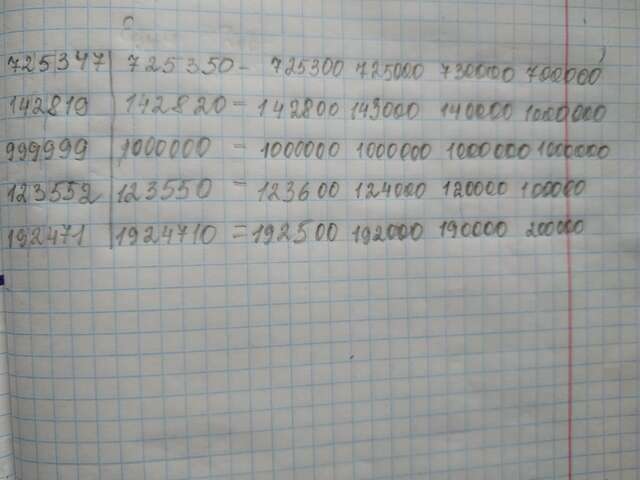 725347 | 725350 - 725300 725000 730000 700000
142819 | 142820 = 142800 143000 140000 1000000
999999 | 1000000 = 1000000 1000000 1000000 1000000
123552 | 123550 = 123600 124000 120000 100000
192471 | 1924710 = 192500 192000 190000 200000